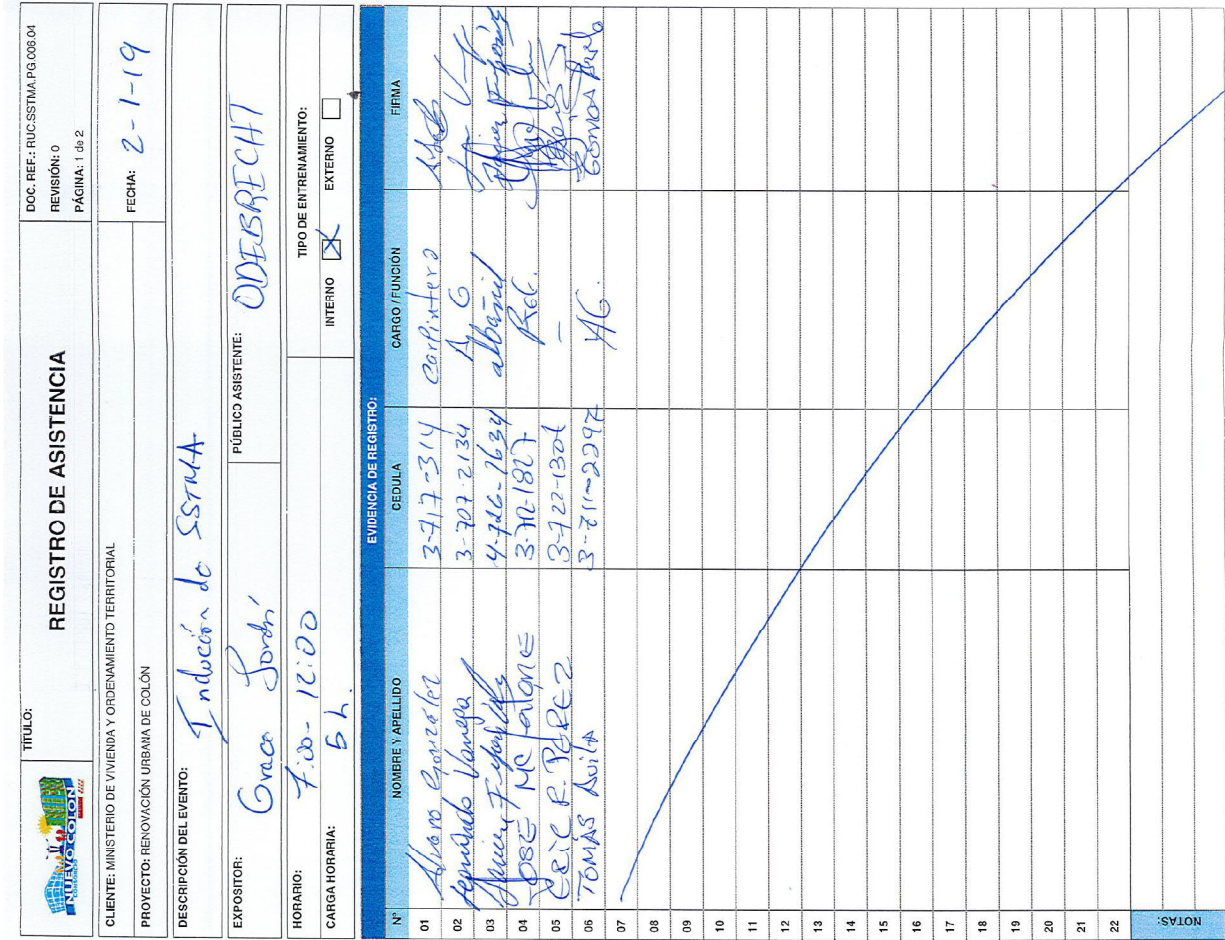 NUEVO COLÓN
CONSORCIO
TÍTULO:
REGISTRO DE ASISTENCIA
DOC. REF.: RUC.SSTMA.PG.006.04
REVISIÓN: 0
PÁGINA: 1 de 2
CLIENTE: MINISTERIO DE VIVIENDA Y ORDENAMIENTO TERRITORIAL
PROYECTO: RENOVACIÓN URBANA DE COLÓN
FECHA: 2-1-19
DESCRIPCIÓN DEL EVENTO: Inducción de SSTMA
EXPOSITOR: Grace
PÚBLICO ASISTENTE: ODEBRECHT
HORARIO: 7:00 - 12:00
CARGA HORARIA: 5 h.
TIPO DE ENTRENAMIENTO:
INTERNO X EXTERNO
EVIDENCIA DE REGISTRO:
N° NOMBRE Y APELLIDO CEDULA CARGO / FUNCIÓN FIRMA
01 Alvaro González 3-717-314 Carpintero
02 Vanega 3-707-2134 A G
03 Javier 4-726-1634 albañil
04 JOSÉ Mc 3-712-1827
05 ERIC R. PEREZ 3-722-1301 -
06 TOMÁS Avila AG. TOMAS Avila
07
08
09
10
11
12
13
14
15
16
17
18
19
20
21
22
NOTAS: